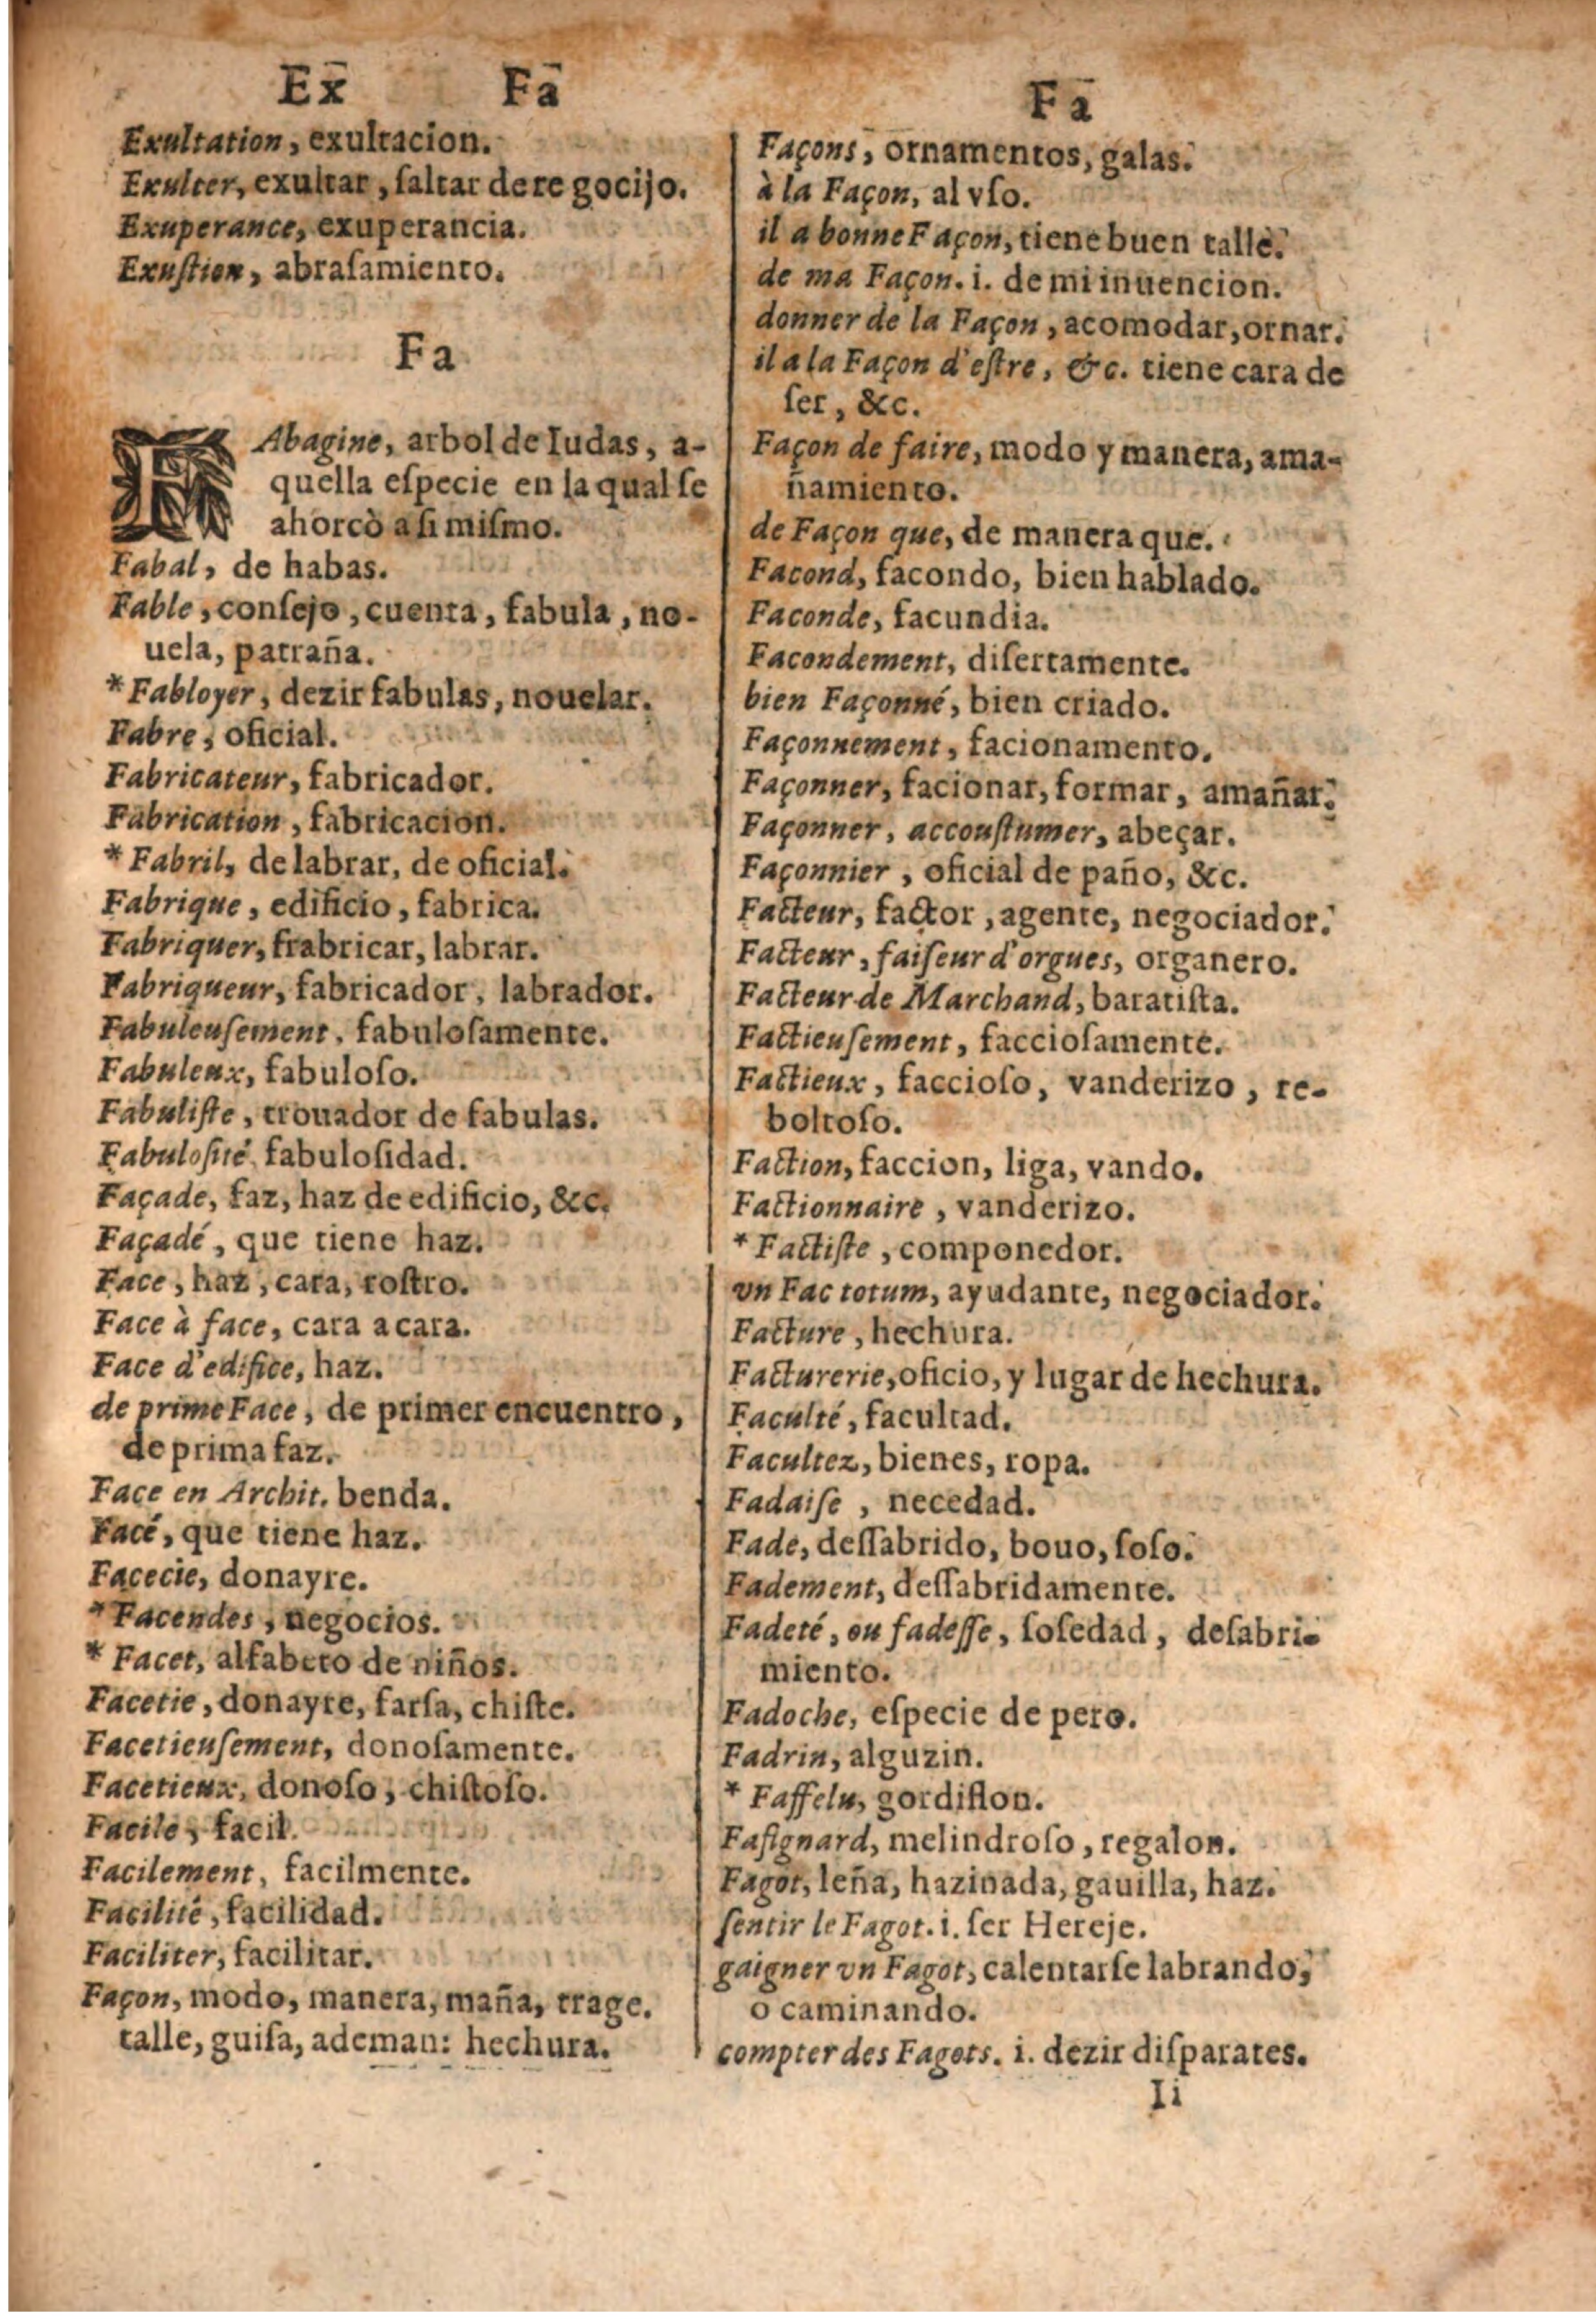 Ex̄ Fā
Exultation, exultacion.
Exulter, exultar, ſaltar de re gocijo.
Exuperance, exuperancia.
Exuſtion, abraſamiento.
Fa
FAbagine, arbol de Iudas, a-
quella eſpecie en la qual ſe
ahorcò a ſi miſmo.
Fabal, de habas.
Fable, conſejo, cuenta, fabula, no-
uela, patraña.
*Fabloyer, dezir fabulas, nouelar.
Fabre, oficial.
Fabricateur, fabricador.
Fabrication, fabricacion.
*Fabril, de labrar, de oficial.
Fabrique, edificio, fabrica.
Fabriquer, frabricar, labrar.
Fabriqueur, fabricador, labrador.
Fabuleuſement, fabuloſamente.
Fabuleux, fabuloſo.
Fabuliſte, trouador de fabulas.
Fabuloſité, fabuloſidad.
Façade, faz, haz de edificio, &c.
Façadé, que tiene haz.
Face, haz, cara, roſtro.
Face à face, cara a cara.
Face d'edifice, haz.
de prime Face, de primer encuentro,
de prima faz.
Face en Archit. benda.
Facé, que tiene haz.
Facecie, donayre.
*Facendes, negocios.
* Facet, alfabeto de niños.
Facetie, donayre, farſa, chiſte.
Facetieuſement, donoſamente.
Facetieux, donoſo, chiſtoſo.
Facile, facil.
Facilement, facilmente.
Facilité, facilidad.
Faciliter, facilitar.
Façon, modo, manera, maña, trage.
talle, guiſa, ademan: hechura.
Fā
Façons, ornamentos, galas.
à la Façon, al vſo.
il a bonne Façon, tiene buen talle.
de ma Façon. i. de mi inuencion.
donner de la Façon, acomodar, ornar.
il a la Façon d'eſtre, &c. tiene cara de
ſer, &c.
Façon de faire, modo y manera, ama-
ñamiento.
de Façon que, de manera que.
Facond, facondo, bien hablado.
Faconde, facundia.
Facondement, diſertamente.
bien Façonné, bien criado.
Façonnement, facionamento.
Façonner, facionar, formar, amañar.
Façonner, accouſtumer, abeçar.
Façonnier, oficial de paño, &c.
Facteur, factor, agente, negociador.
Facteur, faiſeur d'orgues, organero.
Facteur de Marchand, baratiſta.
Factieuſement, faccioſamente.
Factieux, faccioſo, vanderizo, re-
boltoſo.
Faction, faccion, liga, vando.
Factionnaire, vanderizo.
* Factiſte, componedor.
vn Fac totum, ayudante, negociador.
Facture, hechura.
Facturerie, oficio, y lugar de hechura.
Faculté, facultad.
Facultez, bienes, ropa.
Fadaiſe, necedad.
Fade, deſſabrido, bouo, ſoſo.
Fadement, deſſabridamente.
Fadeté, ou fadeſſe, ſoſedad, deſabri-
miento.
Fadoche, eſpecie de pero.
Fadrin, alguzin.
* Faffelu, gordiflon.
Faſignard, melindroſo, regalon.
Fagot, leña, hazinada, gauilla, haz.
ſentir le Fagot. i. ſer Hereje.
gaigner vn Fagot, calentarſe labrando,
o caminando.
compter des Fagots. i. dezir diſparates.
Ii